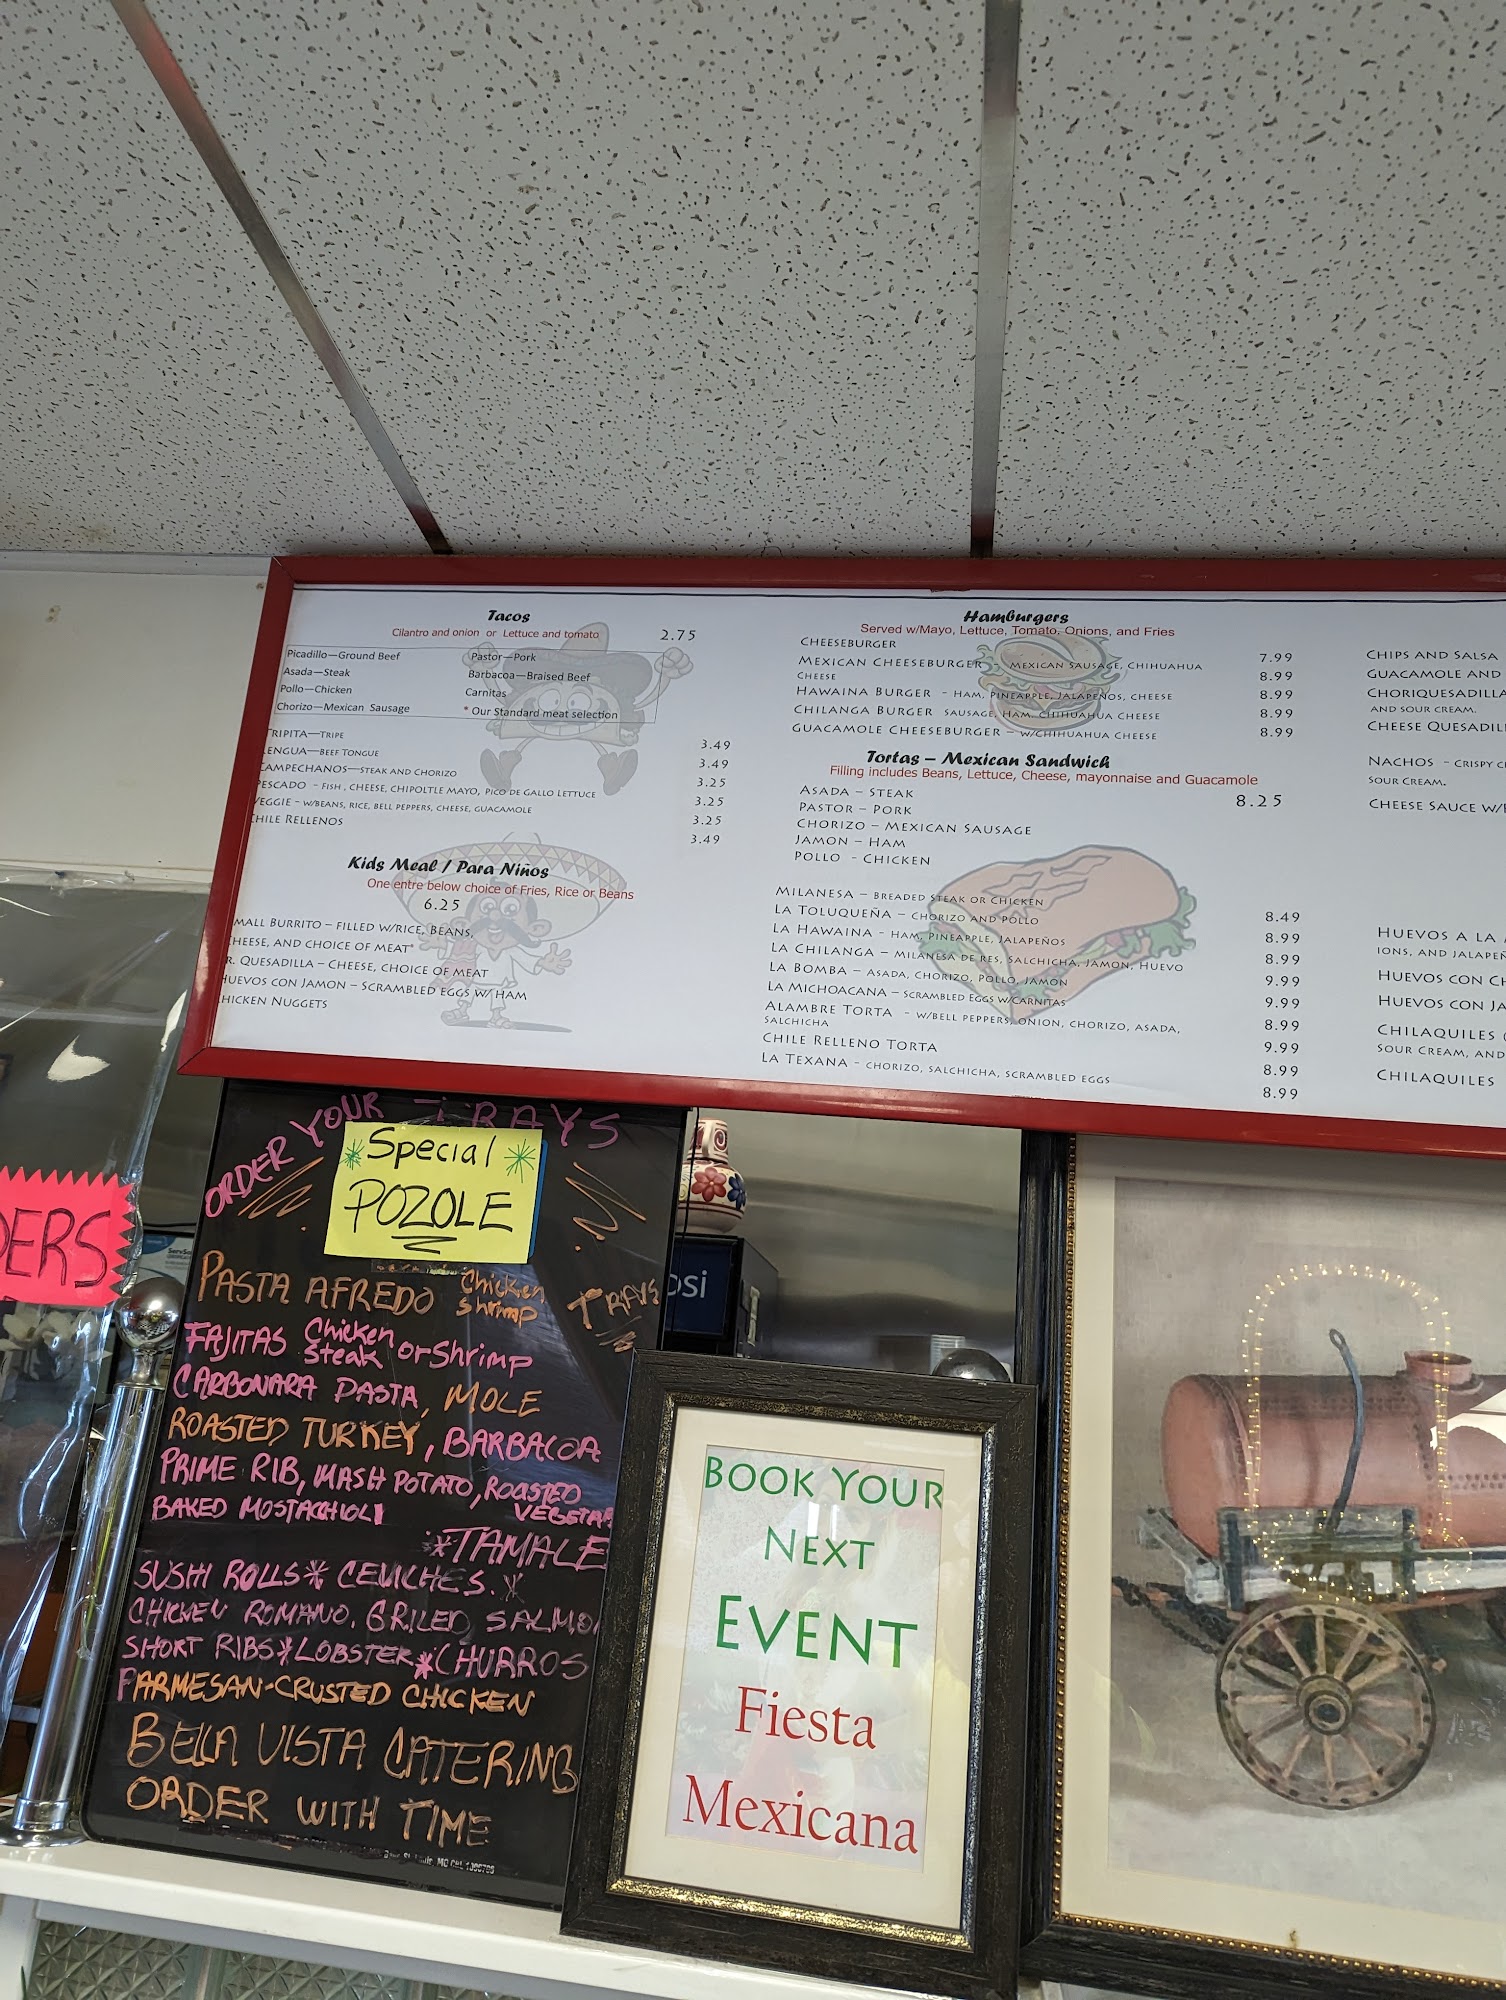 Tacos
Cilantro and onion or Lettuce and tomato 2.75
Picadillo—Ground Beef Pastor—Pork
Asada—Steak Barbacoa—Braised Beef
Pollo—Chicken Carnitas
Chorizo—Mexican Sausage * Our Standard meat selection
TRIPITA—TRIPE 3.49
LENGUA—BEEF TONGUE 3.49
CAMPECHANOS—STEAK AND CHORIZO 3.25
PESCADO - FISH, CHEESE, CHIPOLTLE MAYO, PICO DE GALLO LETTUCE 3.25
VEGGIE - W/BEANS, RICE, BELL PEPPERS, CHEESE, GUACAMOLE 3.25
CHILE RELLENOS 3.49
Kids Meal / Para Niños
One entre below choice of Fries, Rice or Beans
6.25
MALL BURRITO – FILLED W/RICE, BEANS,
CHEESE, AND CHOICE OF MEAT*
R. QUESADILLA – CHEESE, CHOICE OF MEAT
HUEVOS CON JAMON – SCRAMBLED EGGS W/ HAM
CHICKEN NUGGETS
Hamburgers
Served w/Mayo, Lettuce, Tomato, Onions, and Fries
CHEESEBURGER 7.99
MEXICAN CHEESEBURGER - MEXICAN SAUSAGE, CHIHUAHUA 8.99
CHEESE
HAWAINA BURGER - HAM, PINEAPPLE, JALAPEÑOS, CHEESE 8.99
CHILANGA BURGER SAUSAGE, HAM, CHIHUAHUA CHEESE 8.99
GUACAMOLE CHEESEBURGER – W/CHIHUAHUA CHEESE 8.99
Tortas – Mexican Sandwich
Filling includes Beans, Lettuce, Cheese, mayonnaise and Guacamole
ASADA – STEAK 8.25
PASTOR – PORK
CHORIZO – MEXICAN SAUSAGE
JAMON – HAM
POLLO - CHICKEN
MILANESA – BREADED STEAK OR CHICKEN 8.49
LA TOLUQUEÑA – CHORIZO AND POLLO 8.99
LA HAWAINA - HAM, PINEAPPLE, JALAPEÑOS 8.99
LA CHILANGA – MILANESA DE RES, SALCHICHA, JAMON, HUEVO 9.99
LA BOMBA – ASADA, CHORIZO, POLLO, JAMON 9.99
LA MICHOACANA – SCRAMBLED EGGS W/CARNITAS 8.99
ALAMBRE TORTA - W/BELL PEPPERS, ONION, CHORIZO, ASADA, 9.99
SALCHICHA
CHILE RELLENO TORTA 8.99
LA TEXANA - CHORIZO, SALCHICHA, SCRAMBLED EGGS 8.99
CHIPS AND SALSA
GUACAMOLE AND
CHORIQUESADILLA
AND SOUR CREAM.
CHEESE QUESADIL
NACHOS - CRISPY
SOUR CREAM.
CHEESE SAUCE W/
HUEVOS A LA
IONS, AND JALAPEÑ
HUEVOS CON
HUEVOS CON JA
CHILAQUILES
SOUR CREAM, AND
CHILAQUILES
ORDER YOUR TRAYS
Special
POZOLE
PASTA AFREDO Chicken Shrimp TRAYS
FAJITAS Chicken Steak or Shrimp
CARBONARA PASTA, MOLE
ROASTED TURKEY, BARBACOA
PRIME RIB, MASH POTATO, ROASTED
BAKED MOSTACHIOLI VEGETAR
*TAMALE
SUSHI ROLLS * CEVICHES. *
CHICKEN ROMANO. GRILED SALMO
SHORT RIBS * LOBSTER * CHURROS
PARMESAN-CRUSTED CHICKEN
BELLA VISTA CATERING
ORDER WITH TIME
DERS
psi
BOOK YOUR
NEXT
EVENT
Fiesta
Mexicana